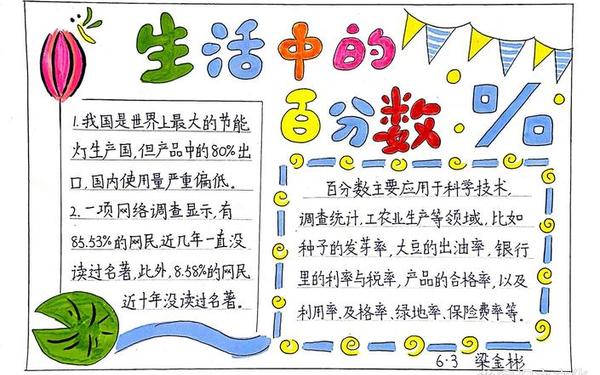 生活中的
百分数 %
1.我国是世界上最大的节能
灯生产国,但产品中的80%出
口,国内使用量严重偏低。
2.一项网络调查显示,有
85.53%的网民近几年一直没
读过名著,此外,8.58%的网民
近十年没读过名著。
百分数主要应用于科学技术,
调查统计,工农业生产等领域,比如
种子的发芽率,大豆的出油率,银行
里的利率与税率,产品的合格率,以及
利用率、及格率、绿地率、保险费率等。
6·3 梁金彬